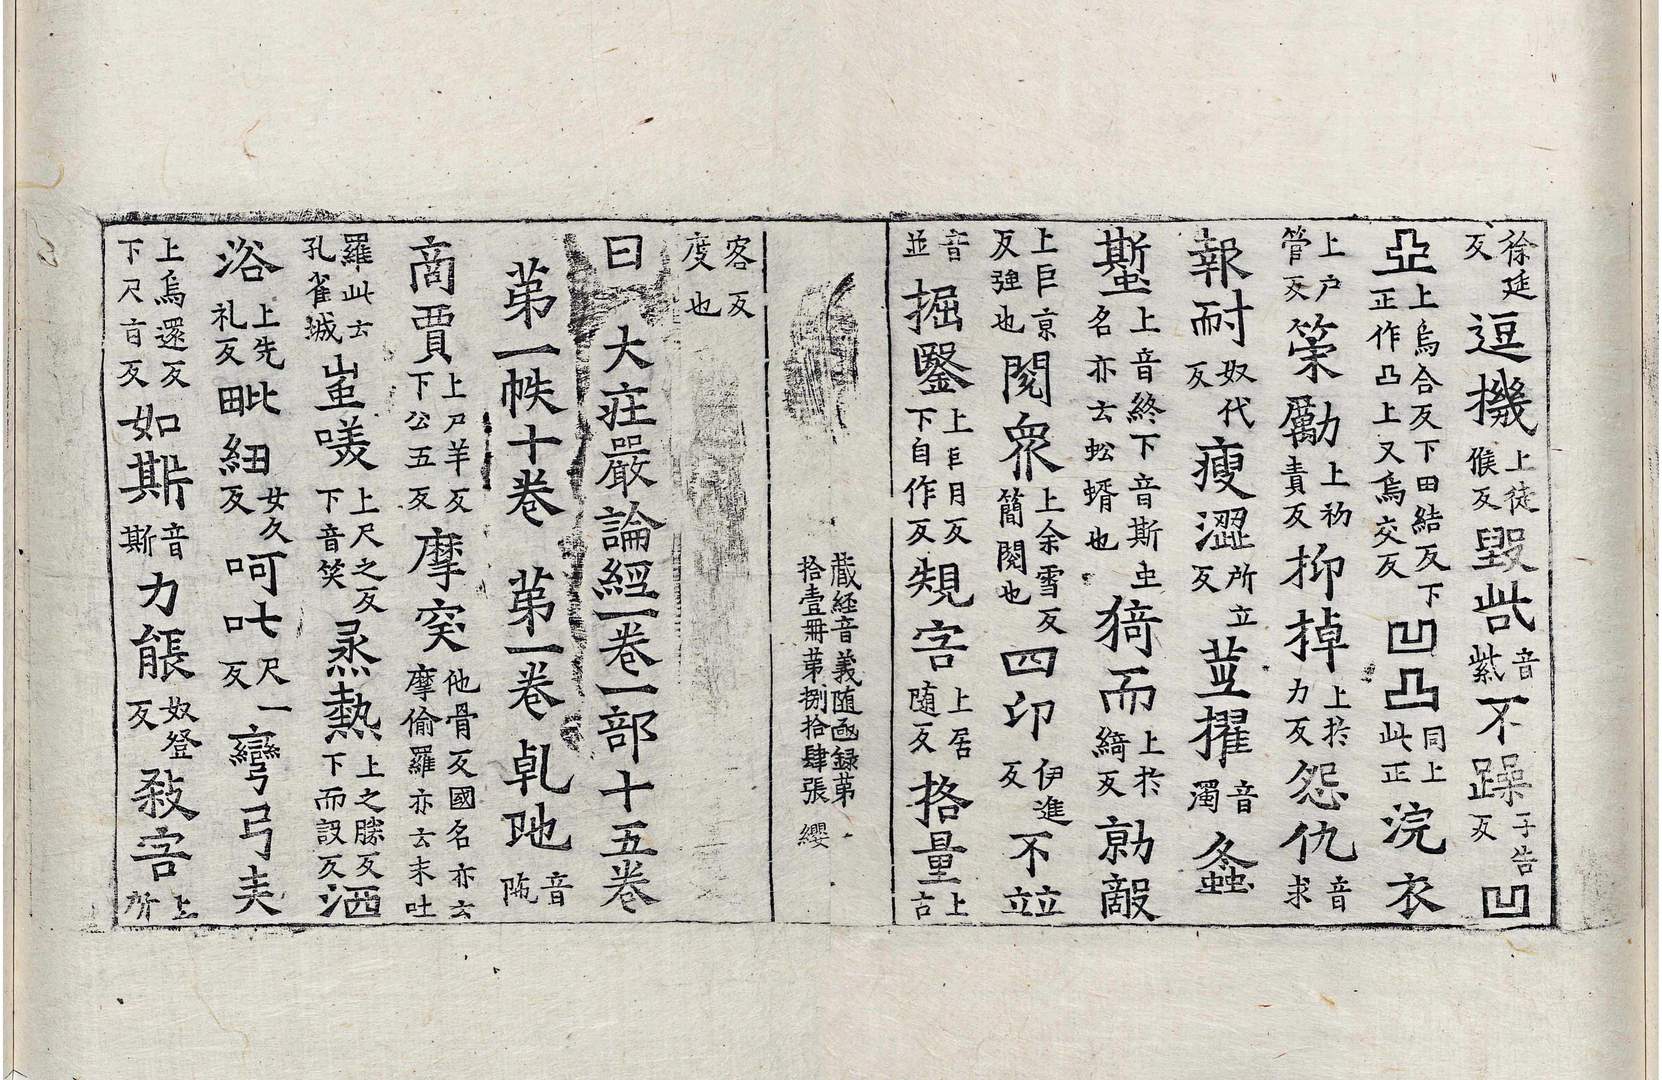 徐延反逗機上徒候反毀呰音紫不躁子告反凹
亞上烏合反下田結反下正作凸上又烏交反凹凸同上此正浣衣
上戶管反策勵上初責反抑掉上於力反怨仇音求
報耐奴代反瘦澀所立反並擢音濁螽
蟴上音終下音斯虫名亦云蚣蝑也猗而上於綺反勍敵
上巨京反強也閱衆上余雪反簡閱也四印伊進反不竝
音並掘鑿上巨月反下自作反規害上居随反格量上古
藏經音義随函録苐拾壹冊苐捌拾肆張 纓
客反度也
曰 大莊嚴論經一卷一部十五卷
苐一帙十卷 苐一卷 乹陁音陁
商賈上尸羊反下公五反摩突他骨反國名亦云摩偷羅亦云末吐
羅此云孔雀城蚩𠺁上尺之反下音笑蒸熱上之勝反下而設反洒
浴上先礼反毗紐女久反呵七尺一反彎弓夫
上烏還反下尺盲反如斯音斯力能奴登反殺害上所